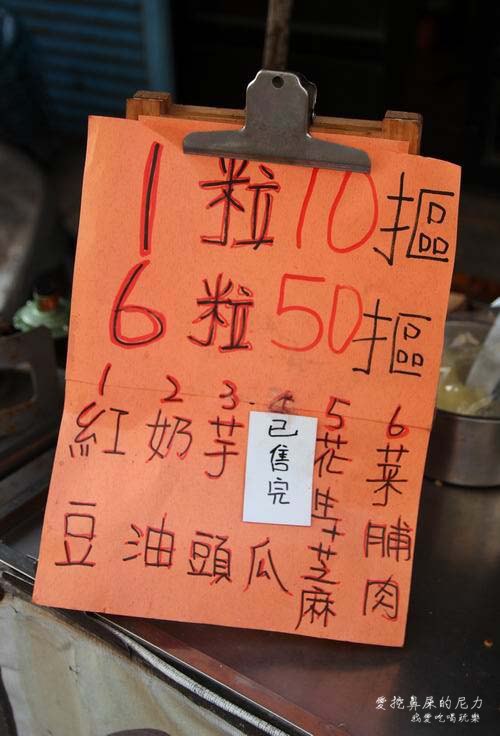 1粒10摳
6粒50摳
1 2 3 4 5 6
紅豆
奶油
芋頭
已售完
瓜
花生芝麻
菜脯肉
愛挖鼻屎的尼力
我愛吃喝玩樂